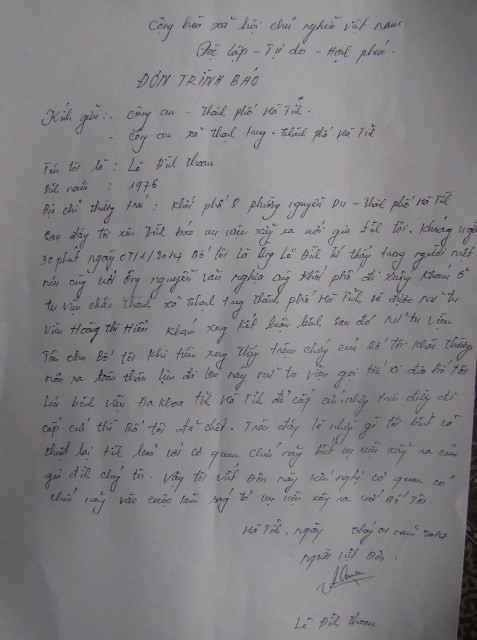 Cộng hòa xã hội chủ nghĩa việt nam
Độc lập - Tự do - Hạnh phúc.
ĐƠN TRÌNH BÁO
Kính gửi: - Công an - Thành phố Hà Tĩnh.
- Công an xã thạch trung - thành phố Hà Tĩnh
Tên tôi là : Lê Đình
Sinh năm : 1976
Địa chỉ thường trú : Khối phố 8 phường nguyễn Du - Thành phố Hà Tĩnh
Sau đây tôi xin trình báo vụ việc xảy ra với gia đình tôi. Khoảng
30 phút ngày 07/1/2014 Bố tôi là ông Lê Đình thấy trong người mệt
nên cùng với ông nguyễn văn nghĩa cùng khối phố đi xuống khám ở
tư viện thành xã thạch trung thành phố Hà Tĩnh và được nữ tư
viên Hoàng thị Hiền khám xong kết luận bệnh, sau đó nữ tư viên
cho Bố tôi khi tiêm xong thấy Bố tôi
toàn thân lúc đó nữ tư viện gọi đưa Bố tôi
bệnh viện Đa khoa tỉnh Hà Tĩnh để cấp cứu nhưng trên đường đi
cấp cứu thì Bố tôi đã chết. Trên đây là những gì tôi biết và
thuật lại với cơ quan chức năng biết vụ việc xảy ra của
gia đình chúng tôi. Vậy tôi viết đơn này kính nghị cơ quan có
chức năng vào cuộc làm sáng tỏ vụ việc xảy ra với Bố tôi.
Hà Tĩnh, ngày tháng 01 năm 2014
người viết đơn.
Lê Đình